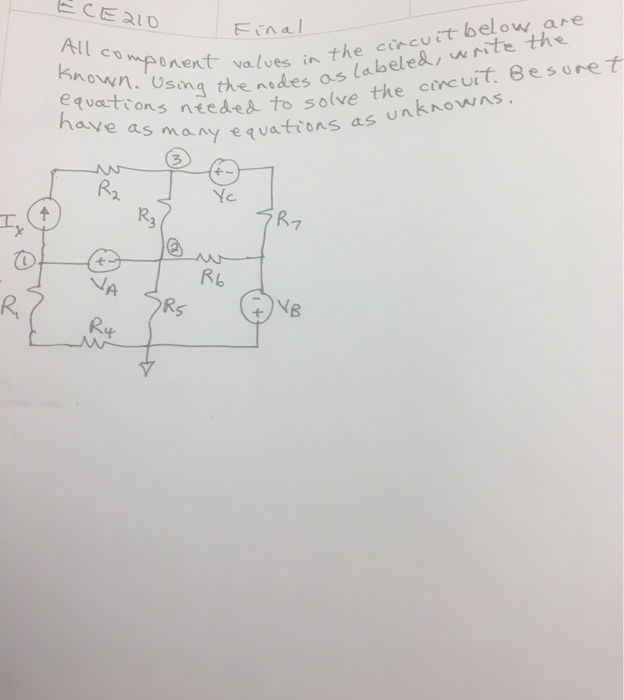 ECE210 Final
All component values in the circuit below are
known. Using the nodes as labeled, write the
equations needed to solve the circuit. Be sure t
have as many equations as unknowns.
3
+ -
R2
Vc
Ix
R3
R7
1
2
+ -
VA
R6
R1
R5
-
+
VB
R4